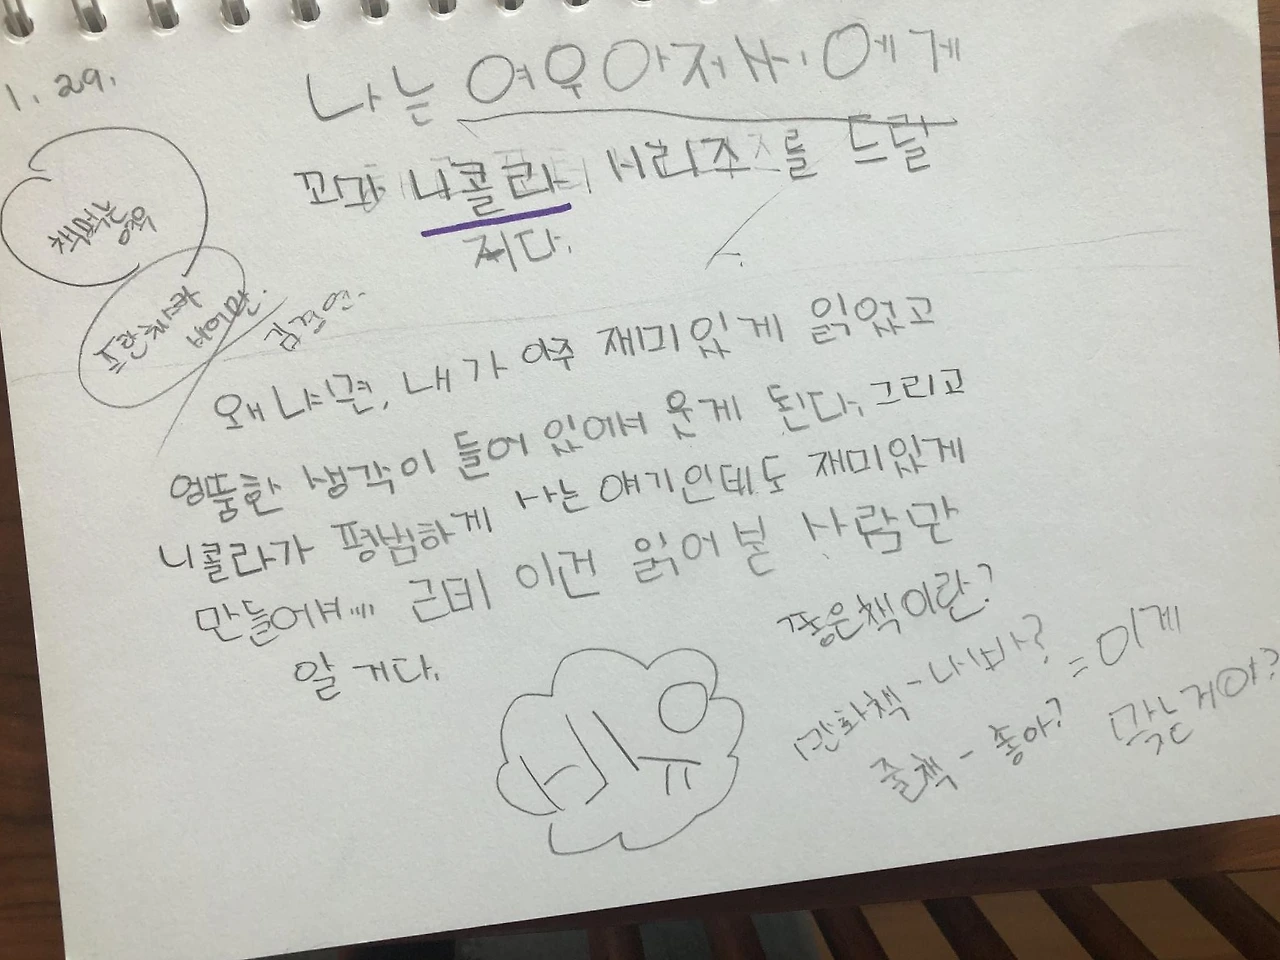 1. 29.
나는 여우아저씨에게
꼬마 니콜라 시리즈를 드릴
거다.
책먹는
여우
프란치스카
비어만.
김경연.
왜냐면, 내가 아주 재미있게 읽었고
엉뚱한 생각이 들어 있어서 웃게 된다. 그리고
니콜라가 평범하게 사는 얘기인데도 재미있게
만들어서... 근데 이건 읽어본 사람만
알 거다.
좋은책이란?
만화책 - 나빠? = 이게
줄책 - 좋아? 맞는거야?